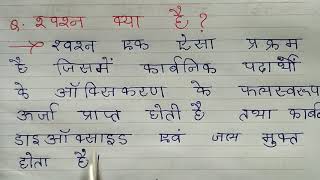 Q. श्वशन क्या है ?
→ श्वशन एक ऐसा प्रक्रम
है जिसमें कार्बनिक पदार्थो
के ऑक्सिकरण के फलस्वरूप
अर्जा प्राप्त होती है तथा कार्बन
डाइऑक्साइड एवं जल मुक्त
होता है।